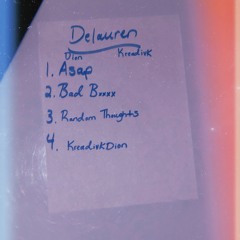 Delauren
Dion Kreadisk
1. Asap
2. Bad Bxxxx
3. Random Thoughts
4. KreadiskDion